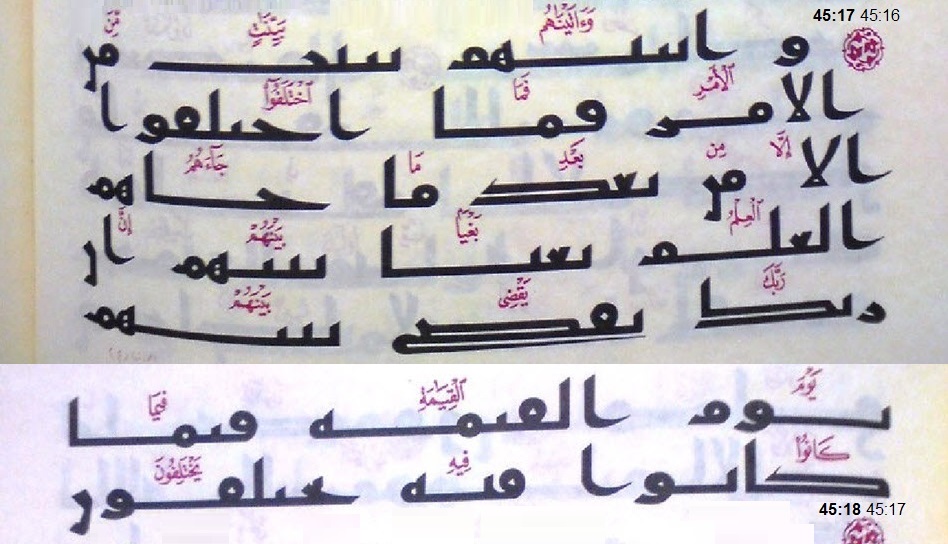 45:17 45:16
وَءَاتَيْنَٰهُم بَيِّنَٰتٍ مِّنَ
و اتينهم بينت من
ٱلْأَمْرِ فَمَا ٱخْتَلَفُوٓا۟
الامر فما اختلفوا
إِلَّا مِنۢ بَعْدِ مَا جَآءَهُمُ
الا من بعد ما جاهم
ٱلْعِلْمُ بَغْيًۢا بَيْنَهُمْ إِنَّ
العلم بغيا بينهم ان
رَبَّكَ يَقْضِى بَيْنَهُمْ
ربك يقضى بينهم
يَوْمَ ٱلْقِيَٰمَةِ فِيمَا
يوم القيمه فيما
كَانُوا۟ فِيهِ يَخْتَلِفُونَ
كانوا فيه يختلفون
45:18 45:17